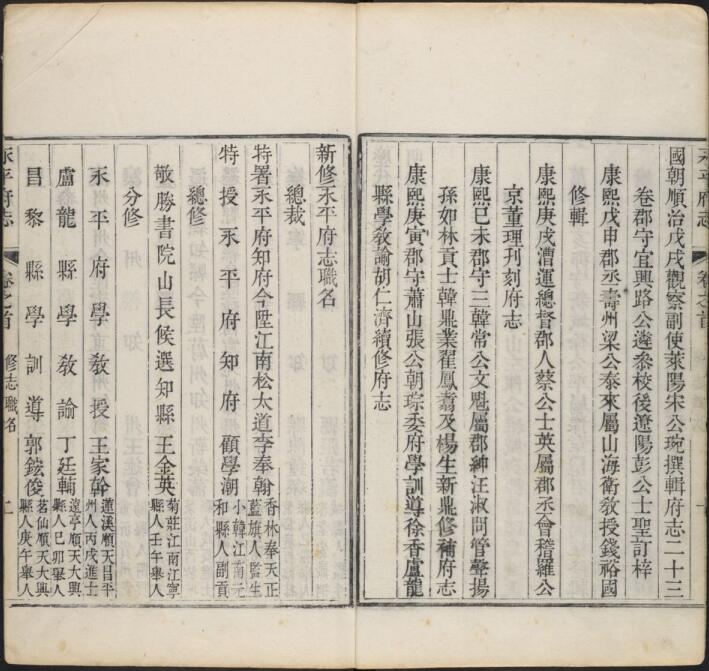 國朝順治戊戌觀察副使萊陽宋公琬撰輯府志二十三
卷郡守宜興路公遴叅校後遼陽彭公士聖訂梓
康熙戊申郡丞壽州梁公泰來屬山海衛敎授錢裕國
修輯
康熙庚戌漕運總督郡人蔡公士英屬郡丞會稽羅公
京董理刋刻府志
康熙己未郡守三韓常公文魁屬郡紳汪淑問管聲揚
孫如林貢士韓鼎業翟鳳翥及楊生新鼎修補府志
康熙庚寅郡守蕭山張公朝琮委府學訓導徐香盧龍
縣學敎諭胡仁濟續修府志
新修永平府志職名
總裁
特署永平府知府今陞江南松太道李奉翰
香林奉天正
藍旗人監生
特授永平府知府顧學潮
小韓江南元
和縣人副貢
總修
敬勝書院山長候選知縣王金英
菊莊江南江寧
縣人壬午舉人
分修
永平府學敎授王家幹
蓮溪順天昌平
州人丙戌進士
盧龍縣學敎諭丁廷輔
遠亭順天大興
縣人己卯舉人
昌黎縣學訓導郭鉉俊
茗仙順天大興
縣人庚午舉人
永平府志
卷之首
修志職名